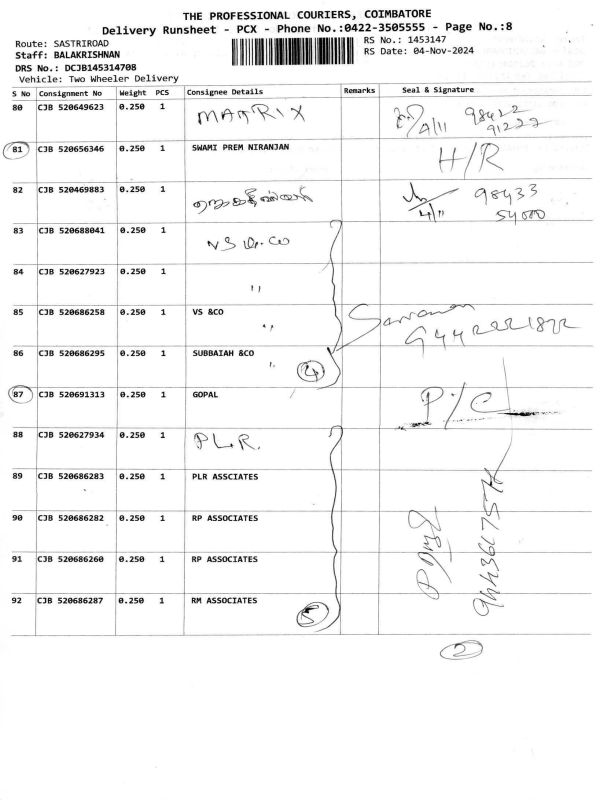 THE PROFESSIONAL COURIERS, COIMBATORE
Delivery Runsheet - PCX - Phone No.:0422-3505555 - Page No.:8
Route: SASTRIROAD
RS No.: 1453147
Staff: BALAKRISHNAN
RS Date: 04-Nov-2024
DRS No.: DCJB145314708
Vehicle: Two Wheeler Delivery
S No Consignment No Weight PCS Consignee Details Remarks Seal & Signature
80 CJB 520649623 0.250 1 MATRIX 4/11 98422
91222
81 CJB 520656346 0.250 1 SWAMI PREM NIRANJAN H/R
82 CJB 520469883 0.250 1 98433
4/11 54000
83 CJB 520688041 0.250 1 VS & Co
84 CJB 520627923 0.250 1 "
85 CJB 520686258 0.250 1 VS &CO " Saravanan
86 CJB 520686295 0.250 1 SUBBAIAH &CO " 4
87 CJB 520691313 0.250 1 GOPAL P/C
88 CJB 520627934 0.250 1 PLR.
89 CJB 520686283 0.250 1 PLR ASSCIATES
90 CJB 520686282 0.250 1 RP ASSOCIATES
91 CJB 520686260 0.250 1 RP ASSOCIATES
92 CJB 520686287 0.250 1 RM ASSOCIATES 5
2